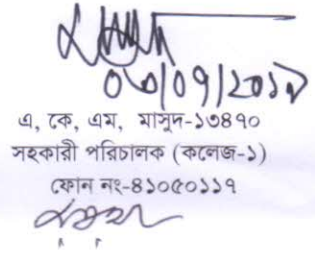 এ, কে, এম, মাসুদ-১৩৪৭০
সহকারী পরিচালক (কলেজ-১)
ফোন নং-৪১০৫০১১৭